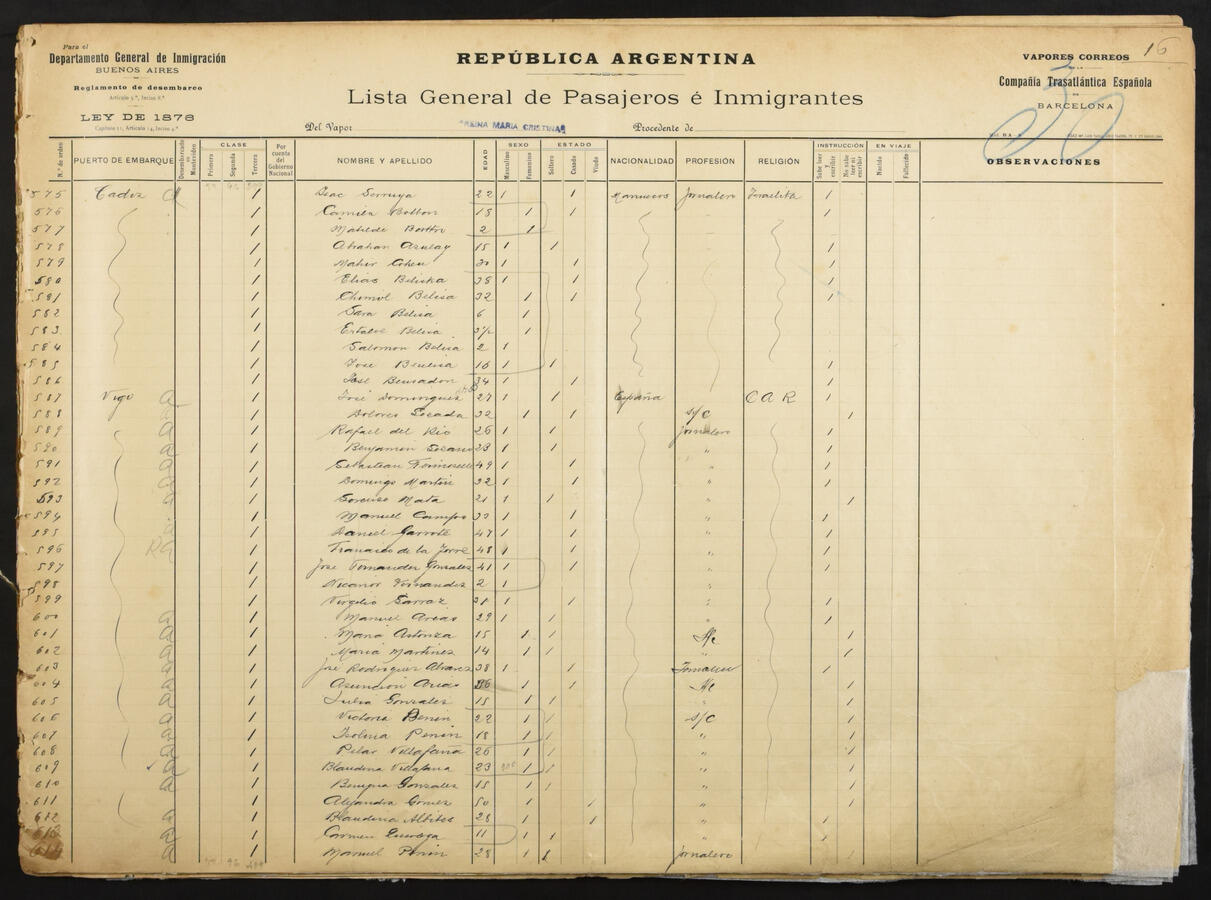 Para el
Departamento General de Inmigración
BUENOS AIRES
Reglamento de desembarco
Artículo 9.º, Inciso 8.º
LEY DE 1876
Capítulo 11, Artículo 14, Inciso 4.º
REPÚBLICA ARGENTINA
Lista General de Pasajeros é Inmigrantes
Del Vapor "REINA MARIA CRISTINA" Procedente de
16
VAPORES CORREOS
DE LA
Compañía Trasatlántica Española
DE
BARCELONA
30
N.º de orden PUERTO DE EMBARQUE Desembarcado en Montevideo CLASE Primera Segunda Tercera Por cuenta del Gobierno Nacional NOMBRE Y APELLIDO EDAD SEXO Masculino Femenino ESTADO Soltero Casado Viudo NACIONALIDAD PROFESIÓN RELIGIÓN INSTRUCCIÓN Sabe leer y escribir No sabe leer ni escribir EN VIAJE Nacido Fallecido OBSERVACIONES
575 Cadiz / Isac Serruya 22 / / Marruecos Jornalero Israelita /
576 / Camila Botbon 18 / / /
577 / Matilde 2 /
578 / Abrahan Azulay 15 / / /
579 / Mahir Cohen 30 / / /
580 / Elias 38 / / /
581 / Belisa 32 / / /
582 / Sara Belisa 6 /
583 / Belisa /
584 / Salomon Belisa 2 /
585 / Jose 16 / / /
586 / José Bensadon 34 / / /
587 Vigo / José Dominguez 27 / / España C A R /
588 / Dolores 32 / / S/C /
589 / Rafael del Rio 26 / / Jornalero /
590 / Benjamin 23 / / " /
591 / Sebastian 49 / / " /
592 / Domingo Martin 32 / / " /
593 / Mata 21 / / " /
594 / Manuel Campo 30 / / " /
595 / Daniel Garrote 47 / / " /
596 / de la Torre 48 / / " /
597 / Jose Fernandez Gonzales 41 / / " /
598 / Nicanor Fernandez 2 / "
599 / Virgilio 31 / / " /
600 / Manuel Arias 29 / / " /
601 / Maria 15 / / S/C /
602 / Maria Martinez 14 / / " /
603 / José Rodriguez Alvarez 38 / / Jornalero /
604 / Asuncion Arias / / S/C /
605 / Julia Gonzales 15 / / /
606 / Victoria Penin 22 / / S/C /
607 / Isolina Penin 18 / / " /
608 / Pilar Villafana 26 / / " /
609 / Blandina Villafana 23 / / " /
610 / Benigna Gonzales 15 / / " /
611 / Alejandra Gomez 50 / / " /
612 / Blandina Albites 28 / / " /
613 / Carmen 11 / / " /
614 / Manuel Penin 28 / / Jornalero /